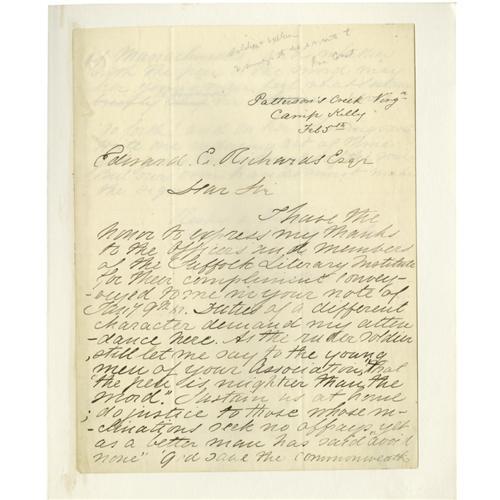 Patterson's Creek Virga
Camp Kelly
Feb 5th
Edward. C. Richards Esqr
Dear Sir
I have the
honor to express my thanks
to the officers and members
of the Suffolk Literary Institute
for their complement convey-
-veyed to me in your note of
Jany 9th. Duties of a different
character demand my atten
-dance here. As the ruder soldier
, still let me say to the young
men of your association, "that
the pen is mightier than the
sword." Sustain us at home
; do justice to those whose in-
-clinations seek no affrays, yet
as a better man has said "avoid
none" God save the Commonwealth